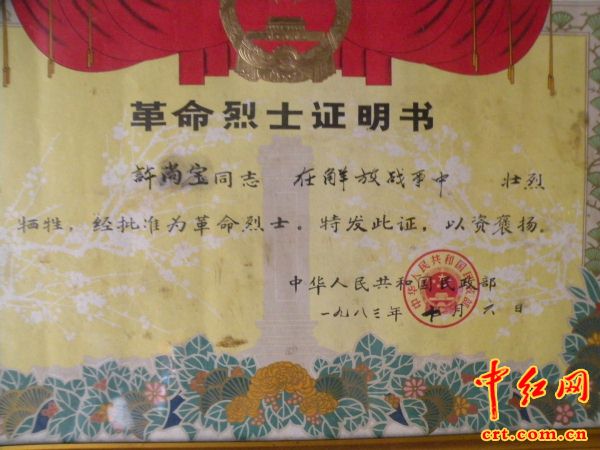 革命烈士证明书
許尚宝同志 在解放战争中 壮烈
牺牲，经批准为革命烈士。特发此证，以资褒扬。
中华人民共和国民政部
一九八三年 月六日
中华人民共和国民政部
中红网
crt.com.cn